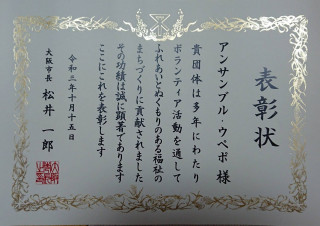 表彰状
アンサンブル・ウペポ 様
貴団体は多年にわたり
ボランティア活動を通して
ふれあいとぬくもりのある福祉の
まちづくりに貢献されました
その功績は誠に顕著であります
ここにこれを表彰します
令和三年十月十五日
大阪市長 松井一郎